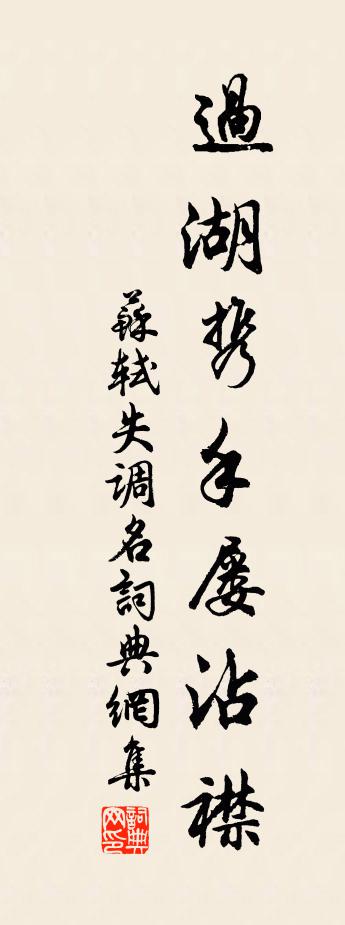 過湖携手屡沾襟
蘇軾失調名詞典網集
詞典網印